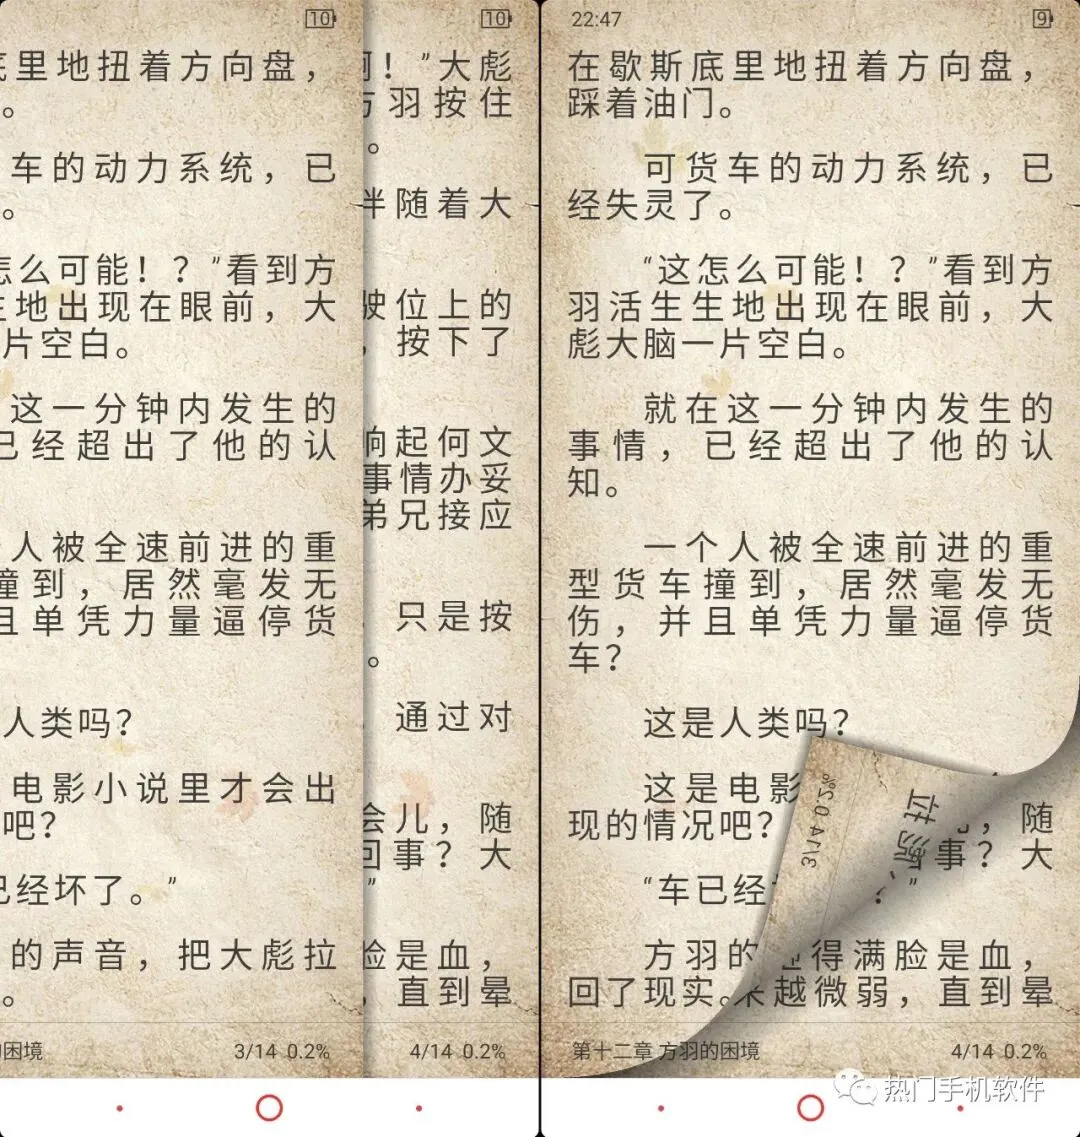 10
底里地扭着方向盘，
。
车的动力系统，已
。
怎么可能！？”看到方
生地出现在眼前，大
片空白。
这一分钟内发生的
已经超出了他的认
个人被全速前进的重
撞到，居然毫发无
且单凭力量逼停货
人类吗？
电影小说里才会出
吧？
已经坏了。”
的声音，把大彪拉
。
的困境
3/14 0.2%
10
！”大彪
方羽按住
。
伴随着大
驶位上的
，按下了
响起何文
事情办妥
弟兄接应
只是按
。
通过对
会儿，随
回事？大
”
脸是血，
，直到晕
4/14 0.2%
22:47
9
在歇斯底里地扭着方向盘，
踩着油门。
可货车的动力系统，已
经失灵了。
“这怎么可能！？”看到方
羽活生生地出现在眼前，大
彪大脑一片空白。
就在这一分钟内发生的
事情，已经超出了他的认
知。
一个人被全速前进的重
型货车撞到，居然毫发无
伤，并且单凭力量逼停货
车？
这是人类吗？
这是电影
，随
现的情况吧？
事？大
“车已经
”
方羽的
得满脸是血，
回了现实。
越微弱，直到晕
3/14 0.2%
第十二章 方羽的困境
4/14 0.2%
热门手机软件